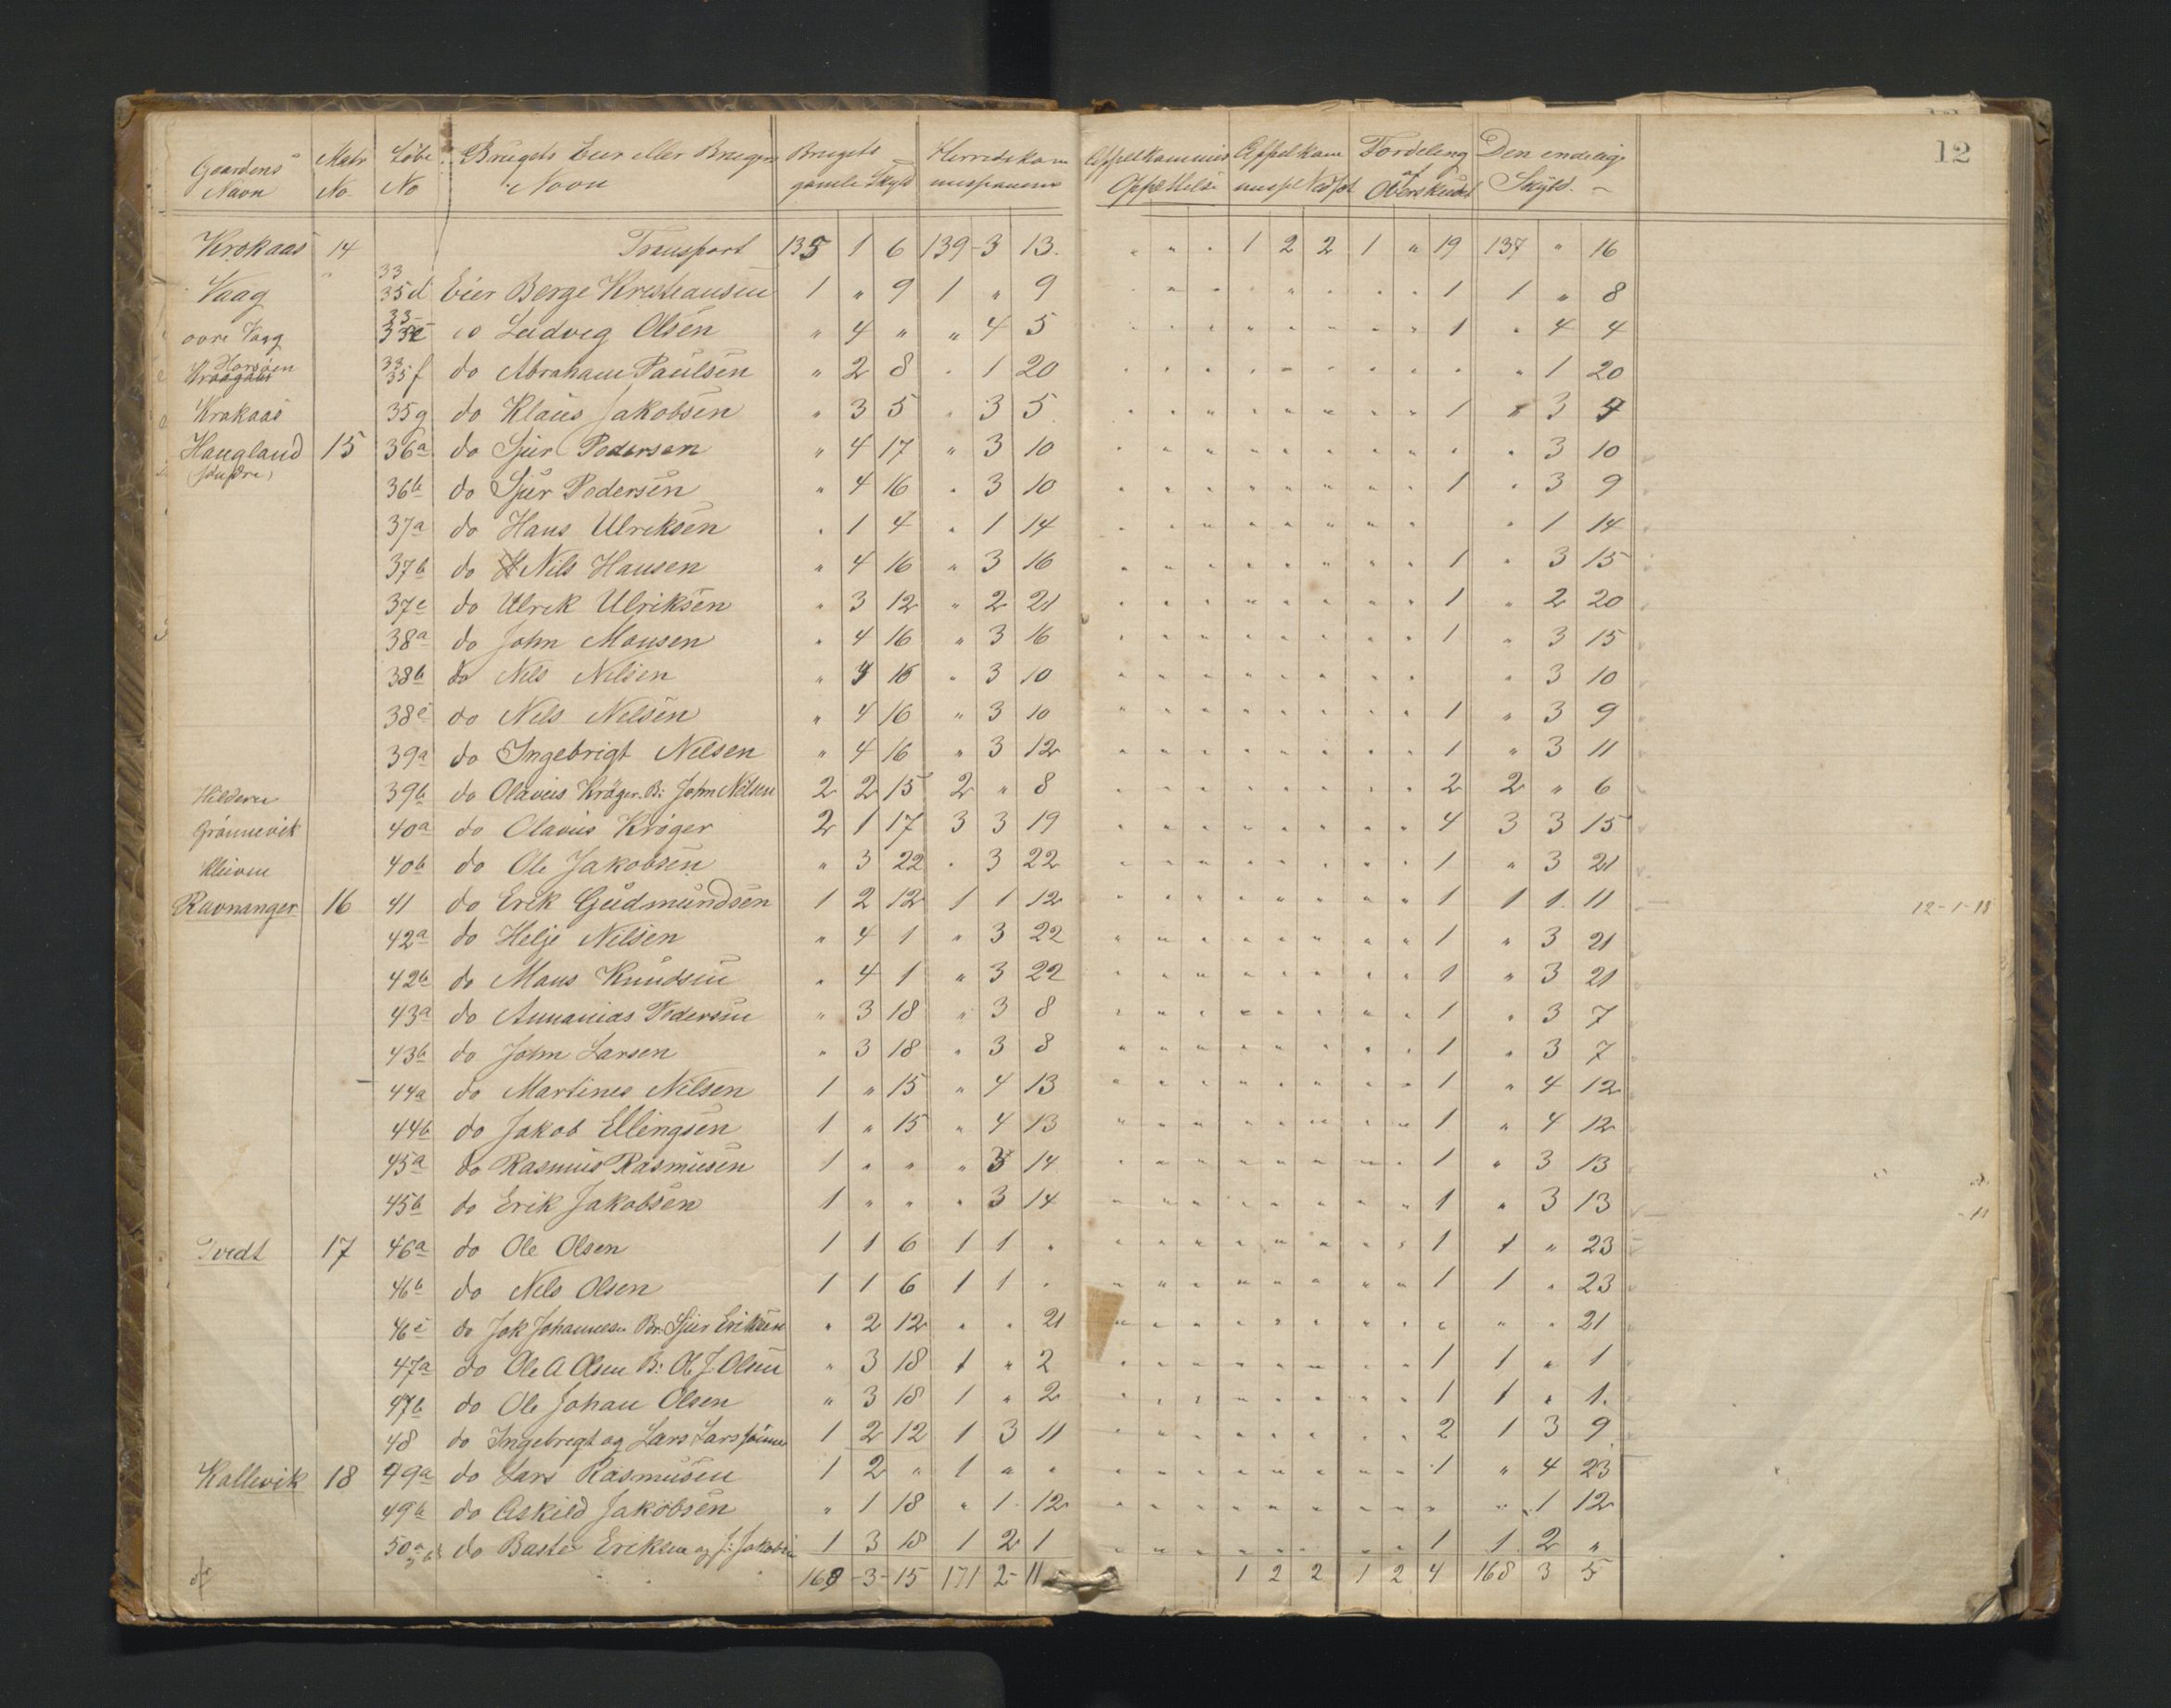 12
Gaardens Navn Matr No Løbe No Brugets Eier eller Brugers Navn Brugets gamle Skyld Herredskommissionens Appelkommis Opsættelse Appelkommisspl Nedsæt Fordeling af Overskudet Den endelige Skyld.
Krokaas 14 Transport 135 1 6 139 3 13. " " " 1 2 2 1 " 19 137 " 16
Vaag " 33 35d Eier Berge Kristiansen 1 " 9 1 " 9 " " " " " " " " 1 1 " 8
øvre Vaag 33 35e do Ludvig Olsen " 4 " " 4 5 " " " " " " " " 1 " 4 4
Horsøen 33 35f do Abraham Paulsen " 2 8 " 1 20 " " " " " " " " " " 1 20
Krokaas 35g do Klaus Jakobsen " 3 5 " 3 5 " " " " " " " " 1 " 3 4
Haugland 15 36a do Sjur Pedersen " 4 17 " 3 10 " " " " " " " " " " 3 10
(søndre) 36b do Sjur Pedersen " 4 16 " 3 10 " " " " " " " " 1 " 3 9
37a do Hans Ulriksen " 1 4 " 1 14 " " " " " " " " " 1 14
37b do Nils Hansen " 4 16 " 3 16 " " " " " " " " 1 " 3 15
37c do Ulrik Ulriksen " 3 12 " 2 21 " " " " " " " " 1 " 2 20
38a do John Monsen " 4 16 " 3 16 " " " " " " " " 1 " 3 15
38b do Nils Nilsen " 4 16 " 3 10 " " " " " " " " " 3 10
38c do Nils Nilsen " 4 16 " 3 10 " " " " " " " " 1 " 3 9
39a do Ingebrigt Nilsen " 4 16 " 3 12 " " " " " " " " 1 " 3 11
Hilderen 39b do Olavius Krøger. B: John Nilsen 2 2 15 2 " 8 " " " " " " " " 2 2 " 6
Grønnevik 40a do Olavus Krøger 2 1 17 3 3 19 " " " " " " " " 4 3 3 15
Kleiven 40b do Ole Jakobsen " 3 22 " 3 22 " " " " " " " " 1 " 3 21
Ravnanger 16 41 do Erik Gudmundsen 1 2 12 1 1 12 " " " " " " " " 1 1 1 11 12-1-18
42a do Helje Nilsen " 4 1 " 3 22 " " " " " " " " 1 " 3 21
42b do Mons Knudsen " 4 1 " 3 22 " " " " " " " " 1 " 3 21
43a do Annanias Pedersen " 3 18 " 3 8 " " " " " " " " 1 " 3 7
43b do John Larsen " 3 18 " 3 8 " " " " " " " " 1 " 3 7
44a do Martines Nilsen 1 " 15 " 4 13 " " " " " " " " 1 " 4 12
44b do Jakob Ellingsen 1 " 15 " 4 13 " " " " " " " " 1 " 4 12
45a do Rasmus Rasmusen 1 " " " 3 14 " " " " " " " " 1 " 3 13
45b do Erik Jakobsen 1 " " " 3 14 " " " " " " " " 1 " 3 13
Tvedt 17 46a do Ole Olsen 1 1 6 1 1 " " " " " " " " " 1 1 " 23
46b do Nils Olsen 1 1 6 1 1 " " " " " " " " " 1 1 " 23
46c do Jak Johannesen Br. Sjur Eriksen " 2 12 " " 21 " " " " " " " " " " " 21
47a do Ole A Olsen B: Ole J. Olsen " 3 18 1 " 2 " " " " " " " " 1 1 " 1
47b do Ole Johan Olsen " 3 18 1 " 2 " " " " " " " " 1 1 " 1.
48 do Ingebregt og Lars Larssønner 1 2 12 1 3 11 " " " " " " " " 2 1 3 9
Kallevik 18 49a do Lars Rasmusen 1 2 " 1 " " " " " " " " " " 1 " 4 23
49b do Askild Jakobsen " 1 18 " 1 12 " " " " " " " " " " 1 12
50a og b do Baste Eriksen og J: Jakobsen 1 3 18 1 2 1 " " " " " " " " 1 1 2 "
168 3 15 171 2 11 1 2 2 1 2 4 168 3 5